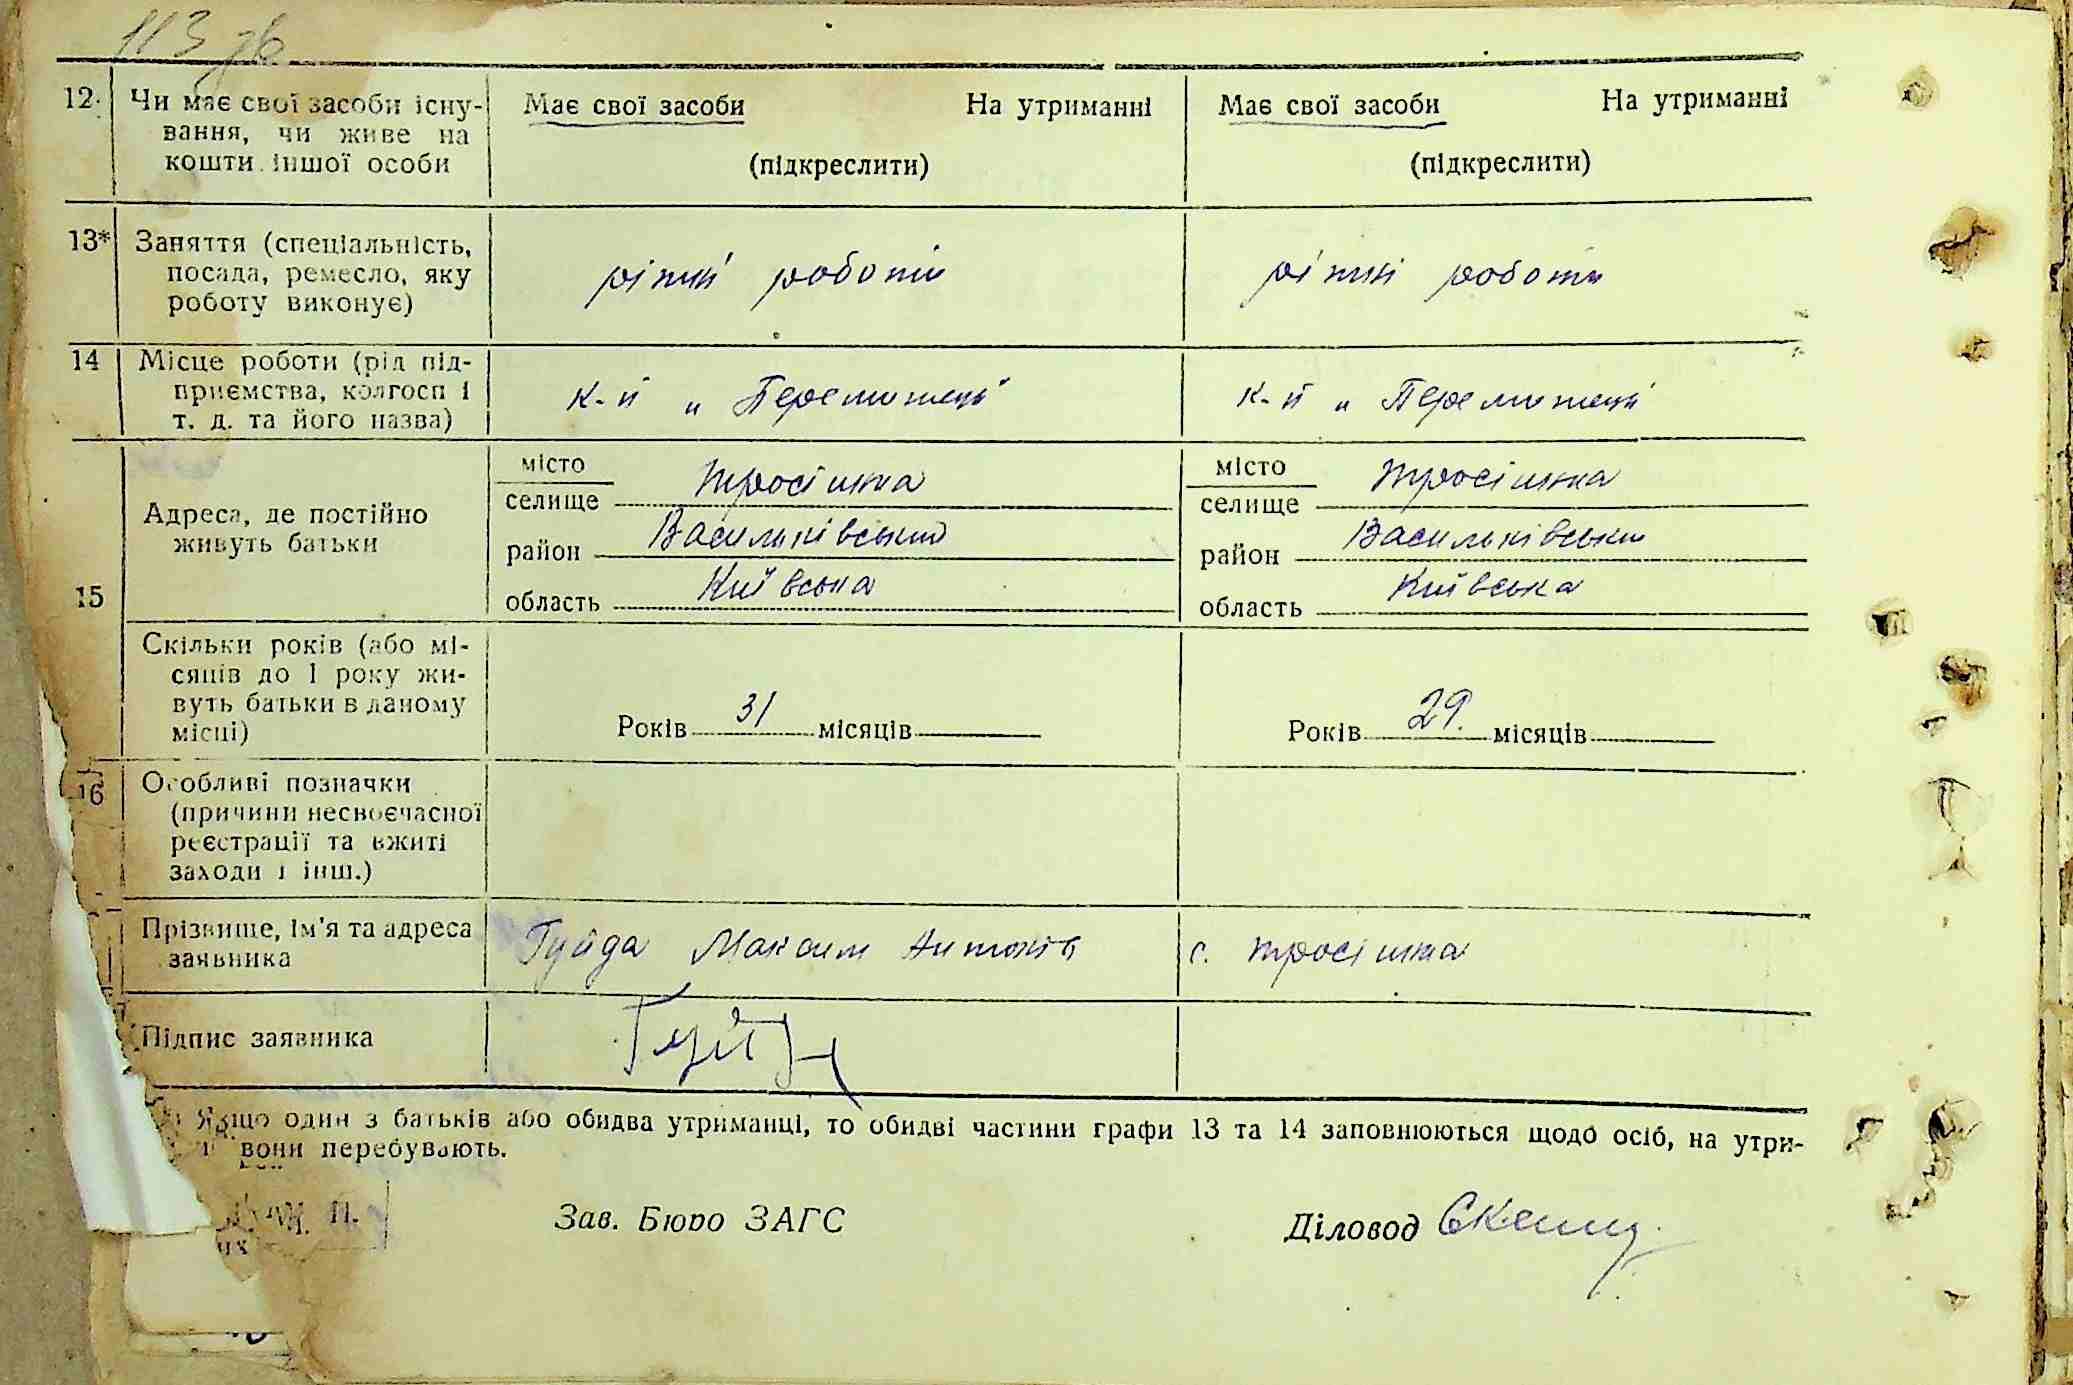 113 зв
12. Чи має свої засоби існу- Має свої засоби На утриманні Має свої засоби На утриманні
вання, чи живе на
кошти іншої особи (підкреслити) (підкреслити)
13* Заняття (спеціальність,
посада, ремесло, яку різні роботи різні роботи
роботу виконує)
14 Місце роботи (рід під-
приємства, колгосп і к-п „Переможець" к-п „Переможець"
т. д. та його назва)
місто Тросінка місто Тросінка
селище селище
Адреса, де постійно
живуть батьки район Васильківський район Васильківський
15 область Київська область Київська
Скільки років (або мі-
сяців до 1 року жи-
вуть батьки в даному
місці) Років 31 місяців Років 29. місяців
16 Особливі позначки
(причини несвоєчасної
реєстрації та вжиті
заходи і інш.)
Прізвище, ім'я та адреса Гуйда Максим Антонів с. Тросінка
заявника
Підпис заявника Гуйда
Якщо один з батьків або обидва утриманці, то обидві частини графи 13 та 14 заповнюються щодо осіб, на утри-
вони перебувають.
Зав. Бюро ЗАГС Діловод